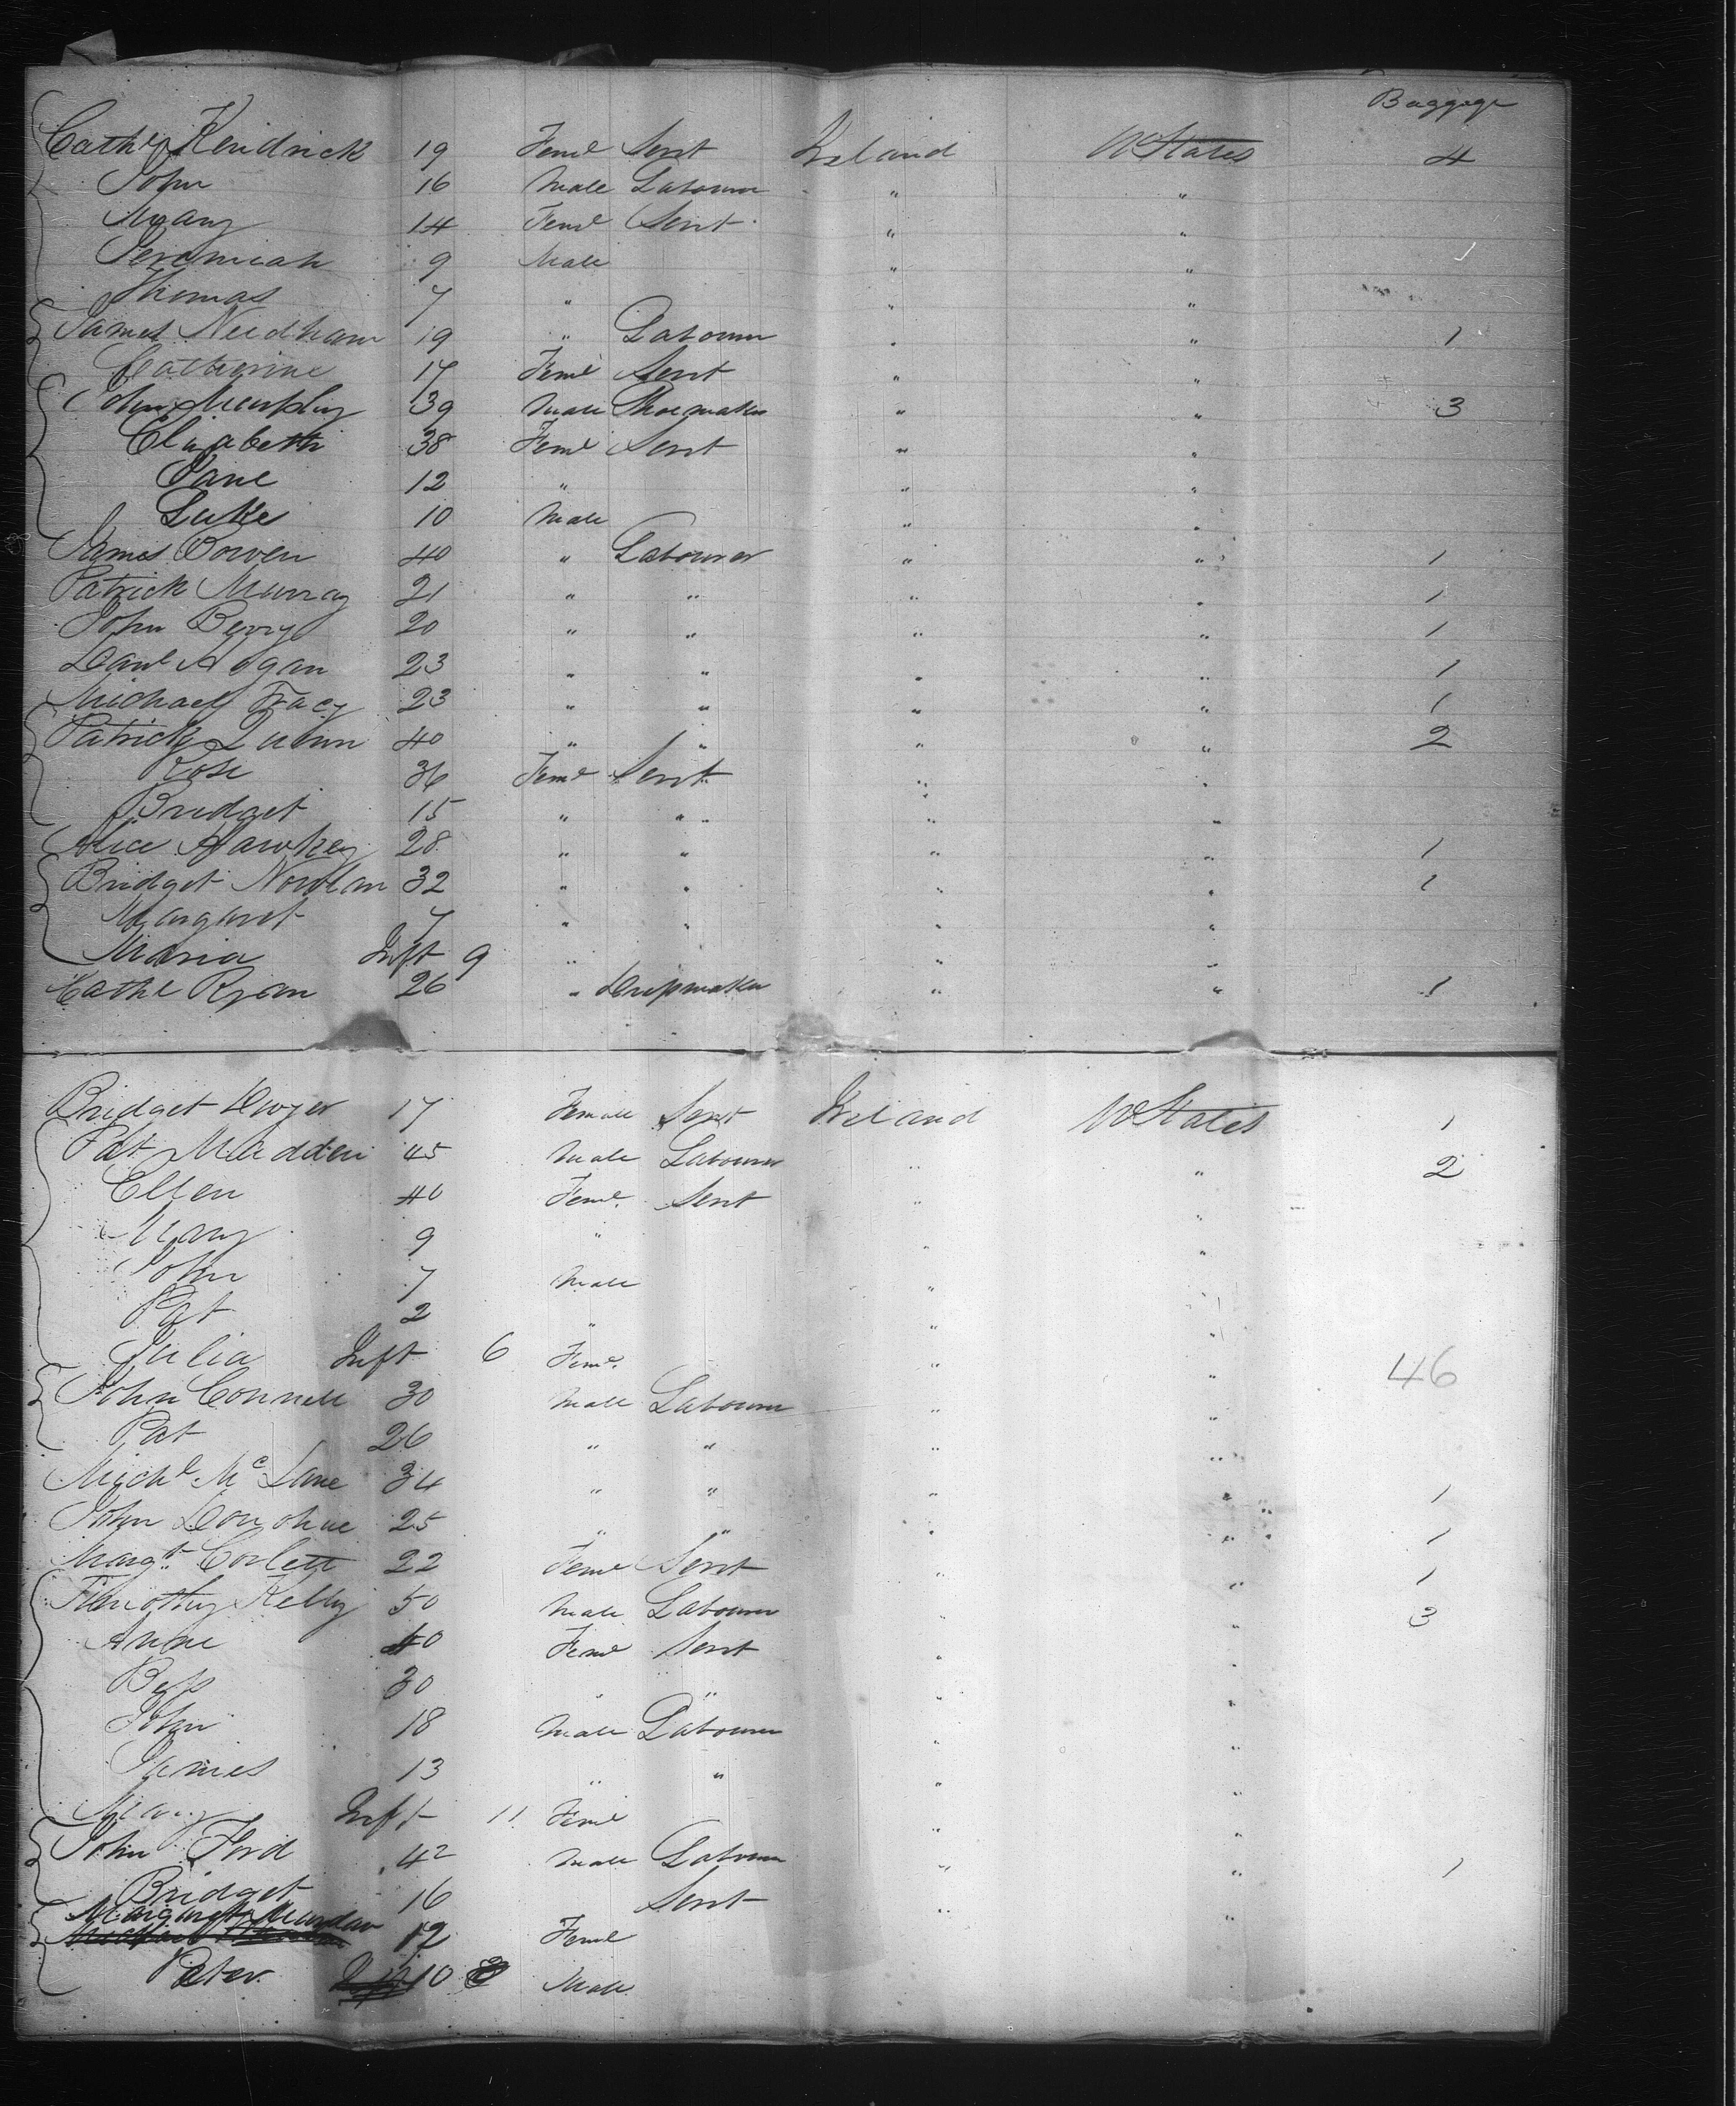 Baggage
Cathe Kendrick 19 Feme Servt Ireland U States 4
John 16 Male Labourer " "
Mary 14 Feme Servt " "
Jeremiah 9 Male " "
Thomas 7 " " "
James Needham 19 " Labourer " " 1
Catherine 17 Feme Servt " "
John Murphy 39 Male Shoemaker " " 3
Elizabeth 38 Feme Servt " "
Jane 12 " " "
Luke 10 Male " "
James Bowen 40 " Labourer " " 1
Patrick Murray 21 " " " " 1
John Berry 20 " " " " 1
Danl Hogan 23 " " " " 1
Michael Tracy 23 " " " " 1
Patrick Quinn 40 " " " " 2
Rose 36 Feme Servt " "
Bridget 15 " " " "
Alice Hawkey 28 " " " " 1
Bridget Nowlan 32 " " " " 1
Margaret 7 " " " "
Maria Inft 9 " " "
Cathe Ryan 26 " Dressmaker " " 1
Bridget Dwyer 17 Female Servt Ireland U States 1
Pat Madden 45 Male Labourer " " 2
Ellen 40 Feme Servt " "
Mary 9 " " "
John 7 Male " "
Pat 2 " " "
Julia Inft 6 Feme " " 46
John Connell 30 Male Labourer " "
Pat 26 " " " "
Michl Mc Lane 34 " " " " 1
John Donohue 25 " " " " 1
Margt Corlett 22 Feme Servt " " 1
Timothy Kelly 50 Male Labourer " " 3
Anne 40 Feme Servt " "
Bess 30 " " " "
John 18 Male Labourer " "
James 13 " " " "
Mary Inft 11 Feme " "
John Ford 42 Male Labourer " " 1
Bridget 16 Servt " "
Margaret 12 Feme
Peter 10 Male